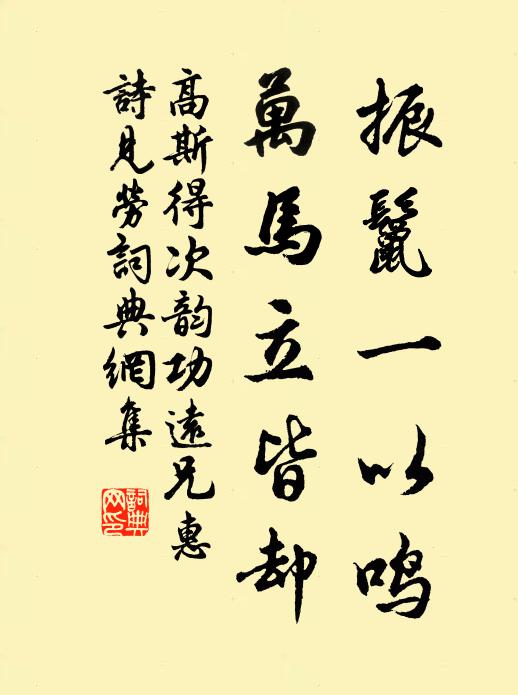 振鬣一以鳴
萬馬立皆却
高斯得次韵功遠兄惠
詩見勞詞典網集
詞典
网印